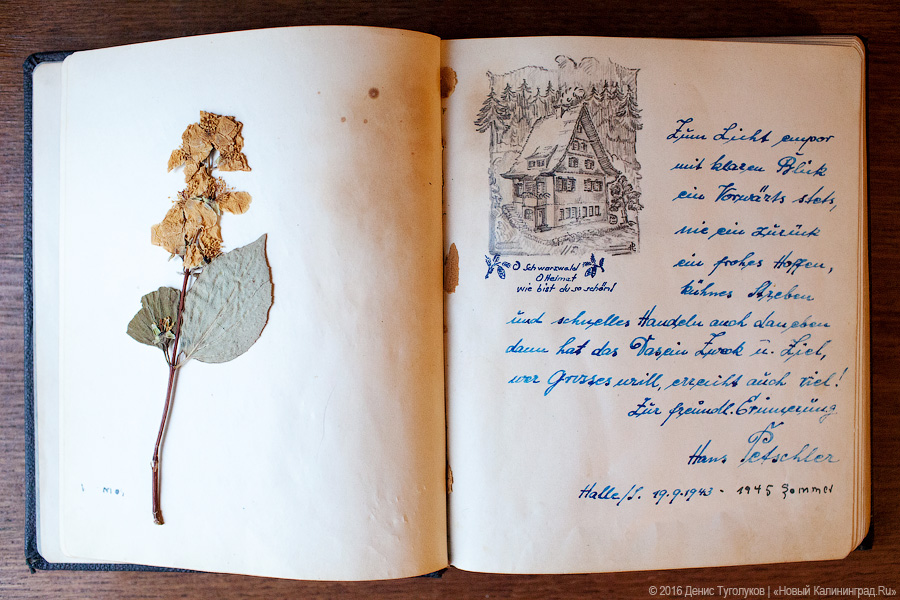 O Schwarzwald
O Heimat
wie bist du so schön!
Zum Licht empor
mit klarem Blick
ein Vorwärts stets,
nie ein zurück
ein frohes Hoffen,
kühnes Streben
und schnelles Handeln auch daneben
dann hat das Dasein Zweck u. Ziel,
wer Grosses will, erreicht auch viel!
Zur freundl. Erinnerung
Hans Petschler
Halle/S. 19.9.1943 - 1945 Sommer
© 2016 Денис Туголуков | «Новый Калининград.Ru»